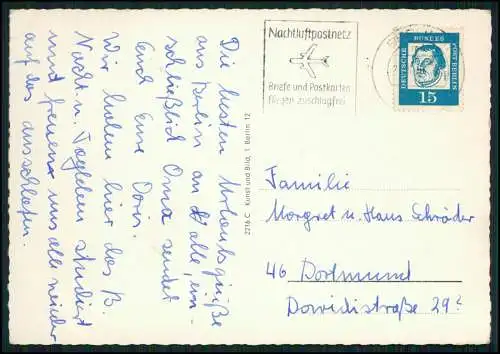 Die besten Urlaubsgrüße
aus Berlin an Alle, ein-
schließlich Oma sendet
Euch Eure Doris.
Wir haben hier das B.
Nacht- u. Tagleben studiert
und freuen uns alle wieder
auf das ausschlafen.
Nachtluftpostnetz
Briefe und Postkarten
fliegen zuschlagfrei
DEUTSCHE BUNDESPOST BERLIN
15
2216 C Kunst und Bild, 1 Berlin 12
Familie
Margret u. Hans Schröder
46 Dortmund
Davidisstraße 29²